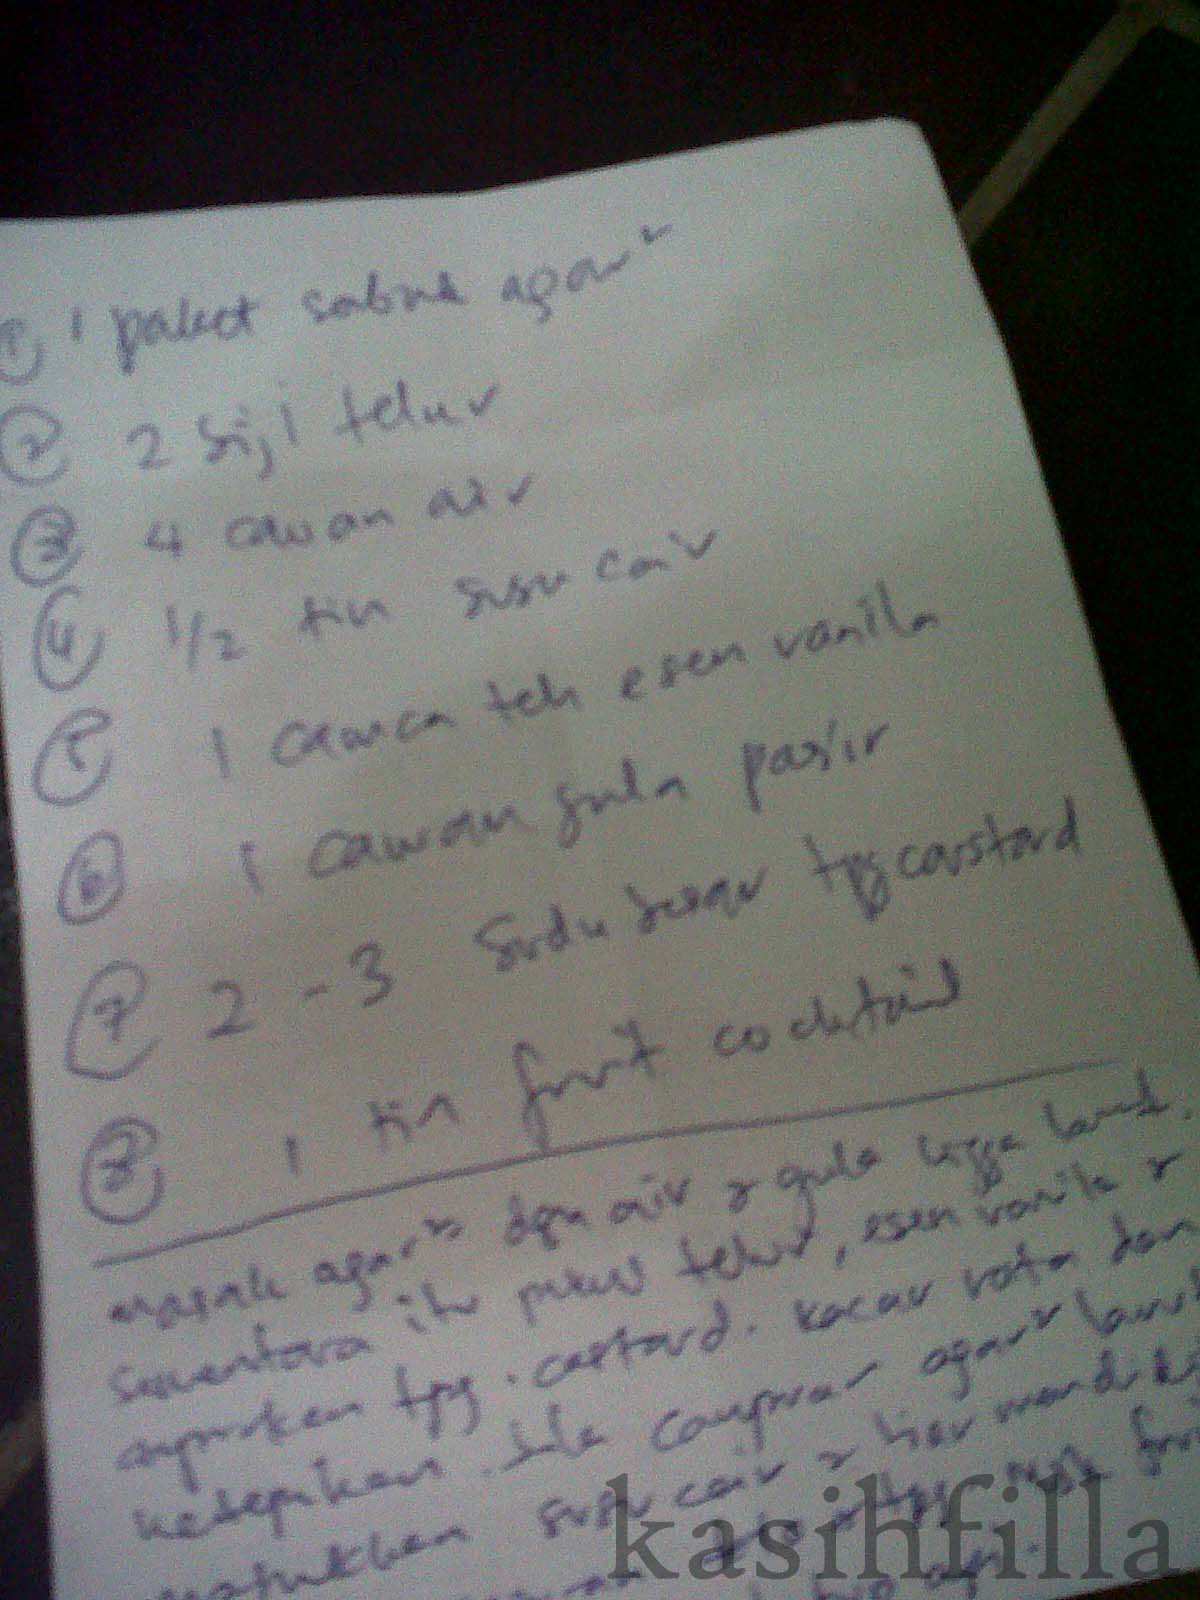 ① 1 paket serbuk agar²
② 2 biji telur
③ 4 cawan air
④ 1/2 tin susu cair
⑤ 1 camca teh esen vanila
⑥ 1 cawan gula pasir
⑦ 2 - 3 sudu besar tpg castard
⑧ 1 tin fruit cocktail
masak agar² dgn air & gula hgga larut.
sementara itu pukul telur, esen vanila &
campurkan tpg. castard. kacau rata dan
ketepikan. bila campuran agar² larut
masukkan susu cair & biar mendidih
kasihfilla